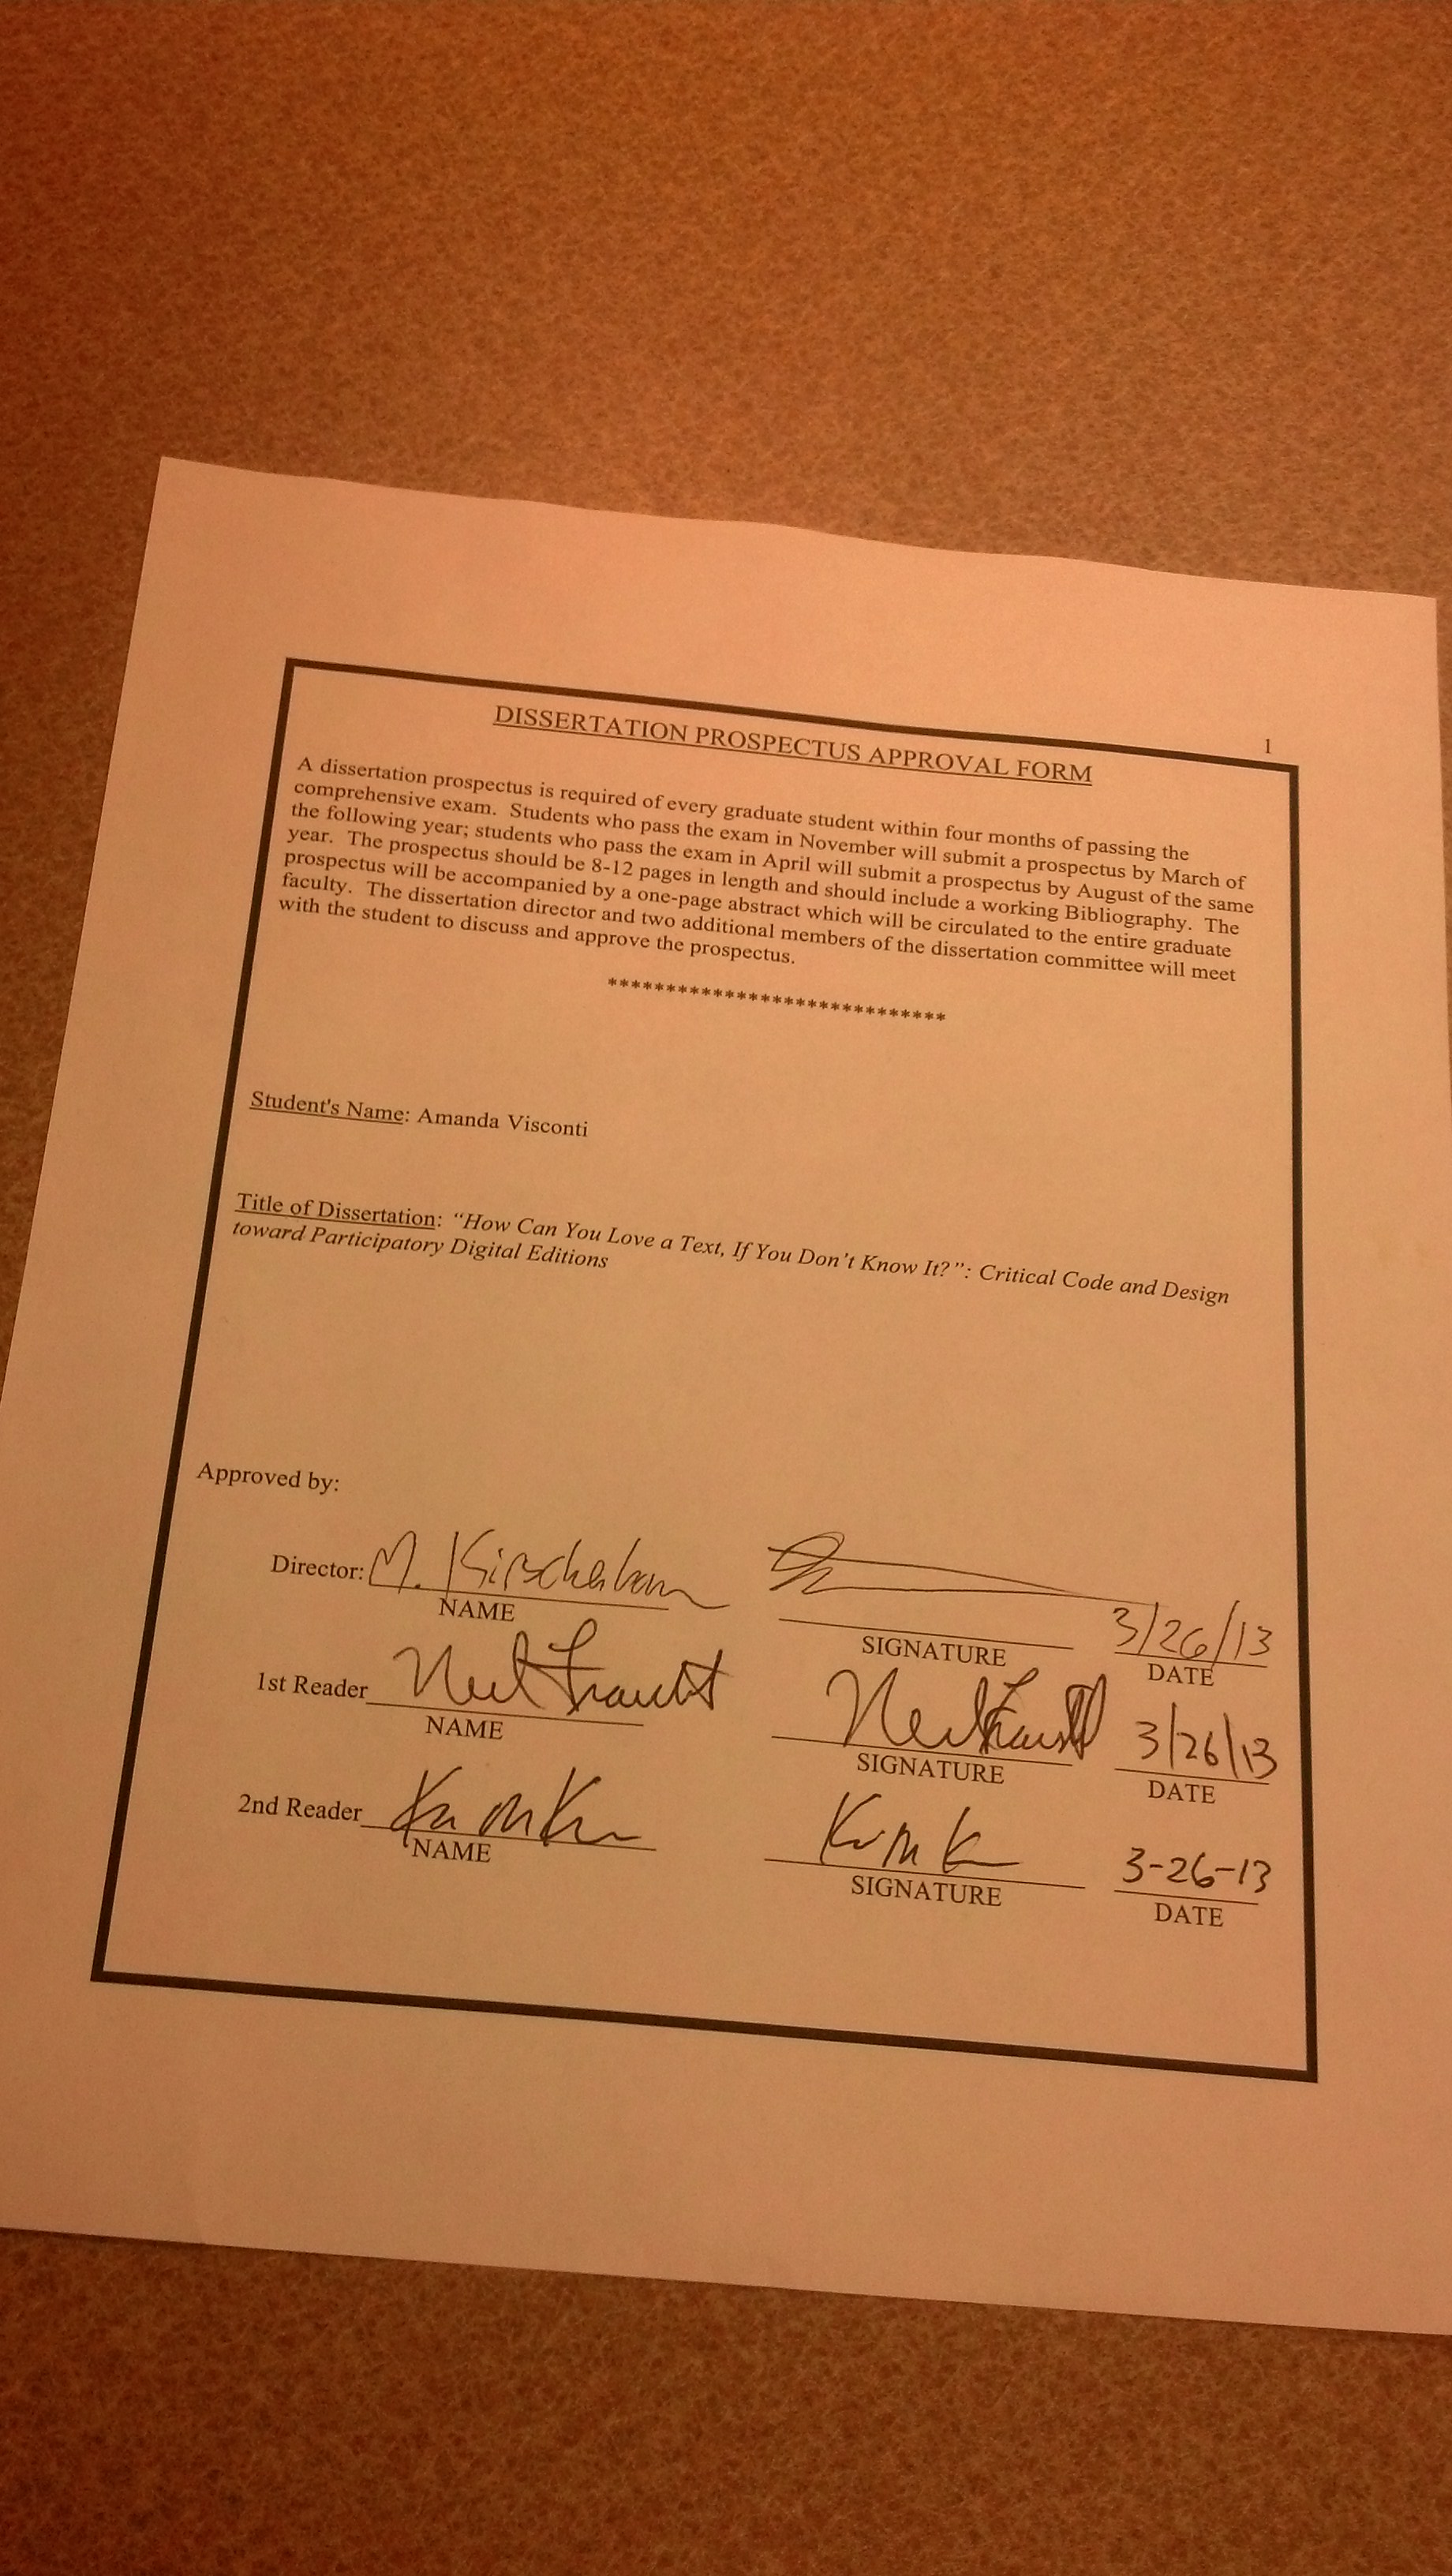 1
DISSERTATION PROSPECTUS APPROVAL FORM
A dissertation prospectus is required of every graduate student within four months of passing the
comprehensive exam. Students who pass the exam in November will submit a prospectus by March of
the following year; students who pass the exam in April will submit a prospectus by August of the same
year. The prospectus should be 8-12 pages in length and should include a working Bibliography. The
prospectus will be accompanied by a one-page abstract which will be circulated to the entire graduate
faculty. The dissertation director and two additional members of the dissertation committee will meet
with the student to discuss and approve the prospectus.
*****************************
Student's Name: Amanda Visconti
Title of Dissertation: “How Can You Love a Text, If You Don’t Know It?”: Critical Code and Design
toward Participatory Digital Editions
Approved by:
Director: M. Kirschenbaum 3/26/13
NAME SIGNATURE DATE
1st Reader Neil Fraistat Neil Fraistat 3/26/13
NAME SIGNATURE DATE
2nd Reader 3-26-13
NAME SIGNATURE DATE